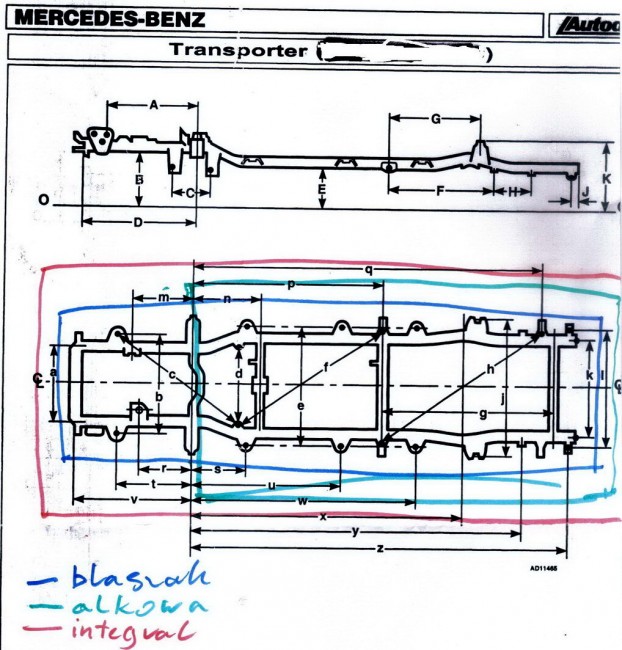 MERCEDES-BENZ
Autod
Transporter ( )
A
G
B
C
E
F
H
J
K
O
D
q
p
m
n
a
b
c
d
e
f
g
h
j
k
l
r
s
t
u
v
w
x
y
z
AD11465
blaszak
alkowa
integral